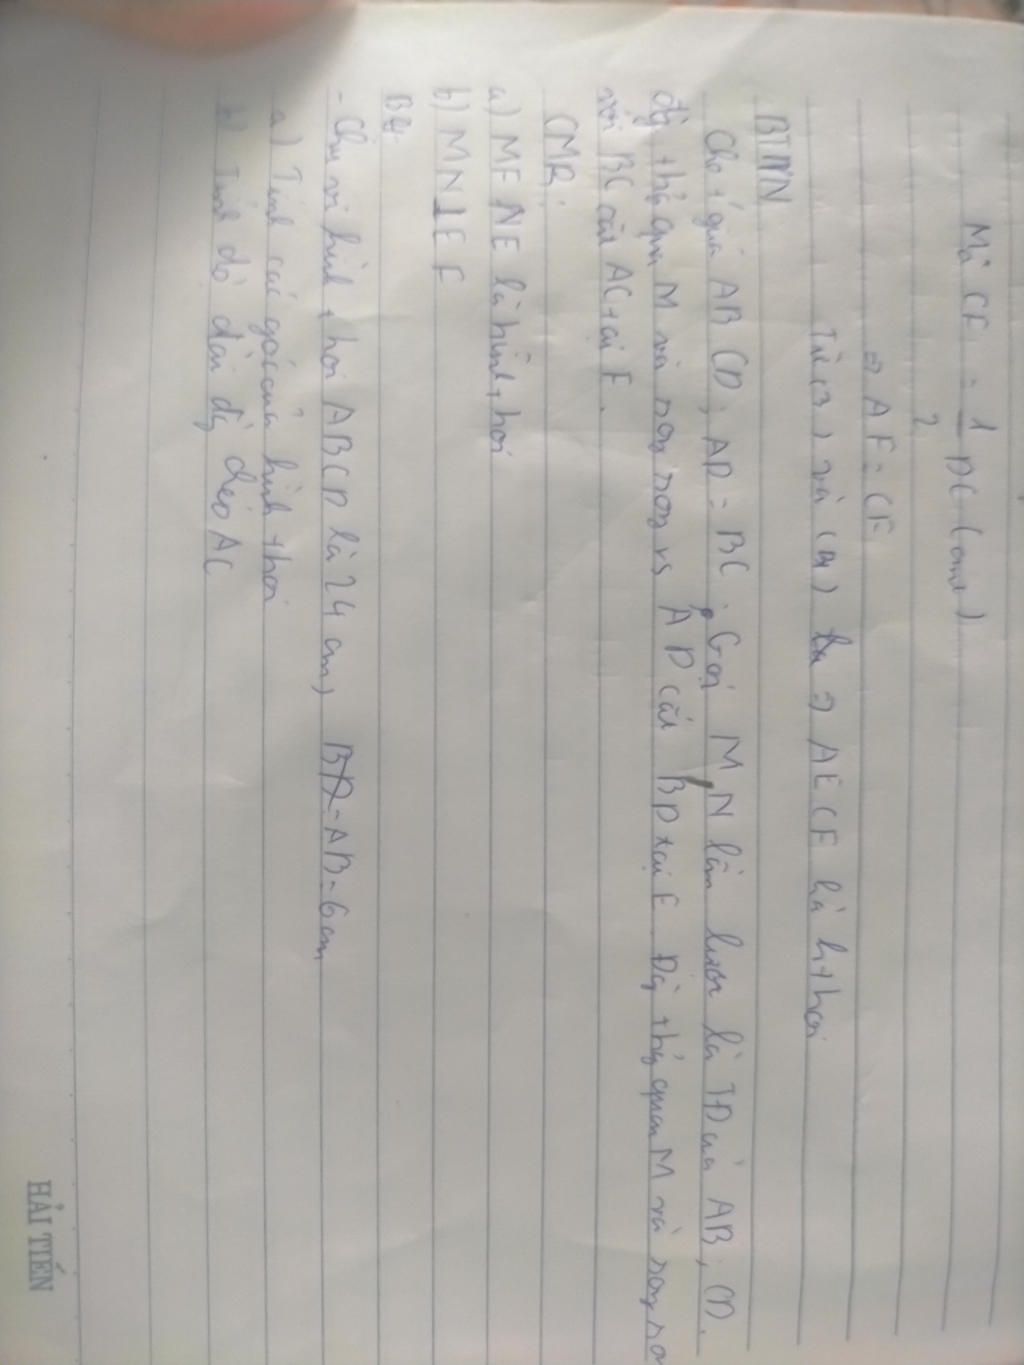 Mà CF = 1/2 DC (cmt)
⇒ AF = CF
Từ (3) và (4) ⇒ AECF là h.thoi
BTVN
Cho tứ giác ABCD, AD = BC. Gọi M, N lần lượt là TĐ của AB, CD.
đg thg qua M và song song vs AD cắt BD tại E. Đg thg qua M và song so
với BC cắt AC tại F.
CMR:
a) MFNE là hình thoi
b) MN⊥EF
B4:
- Chu vi hình thoi ABCD là 24 cm, BD = AB = 6cm
a) Tính các góc của hình thoi
b) Tính độ dài đg chéo AC
HẢI TIẾN